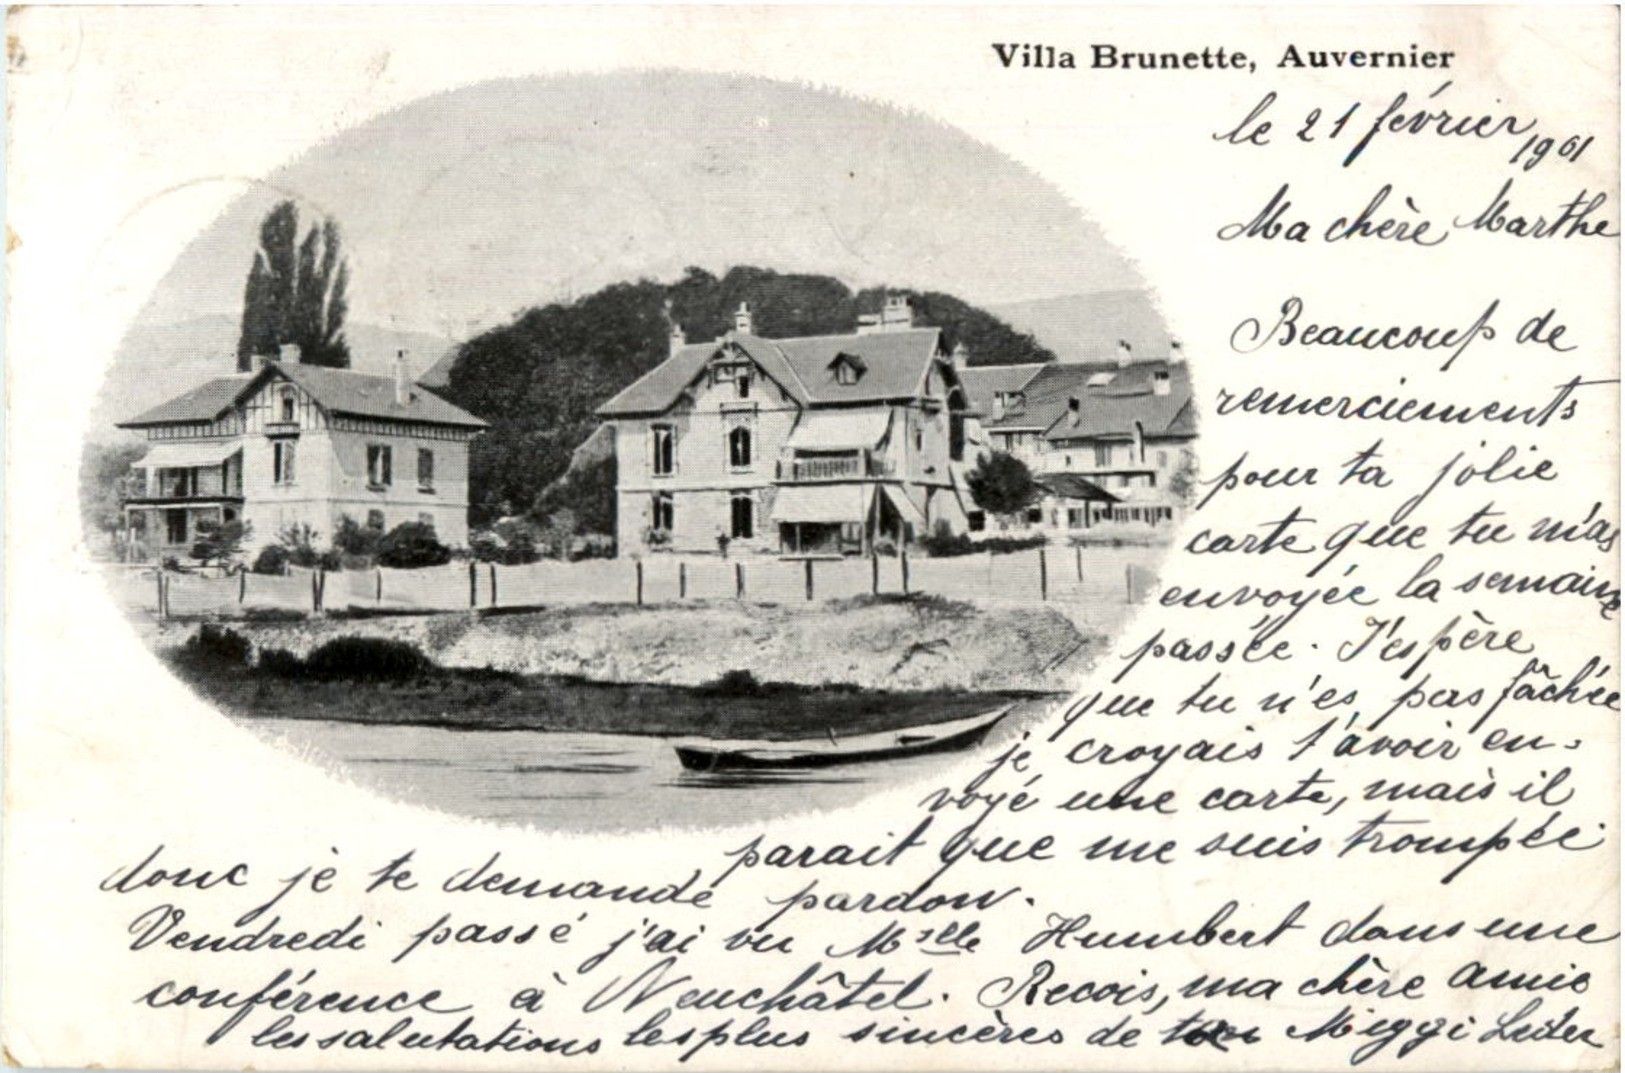 Villa Brunette, Auvernier
le 21 février 1901
Ma chère Marthe
Beaucoup de
remerciements
pour ta jolie
carte que tu m'as
envoyée la semaine
passée. J'espère
que tu n'es pas fâchée
je croyais t'avoir en-
voyé une carte, mais il
parait que me suis trompée
donc je te demande pardon.
Vendredi passé j'ai vu Mselle Humbert dans une
conférence à Neuchâtel. Recois, ma chère amie
les salutations les plus sincères de Meggi